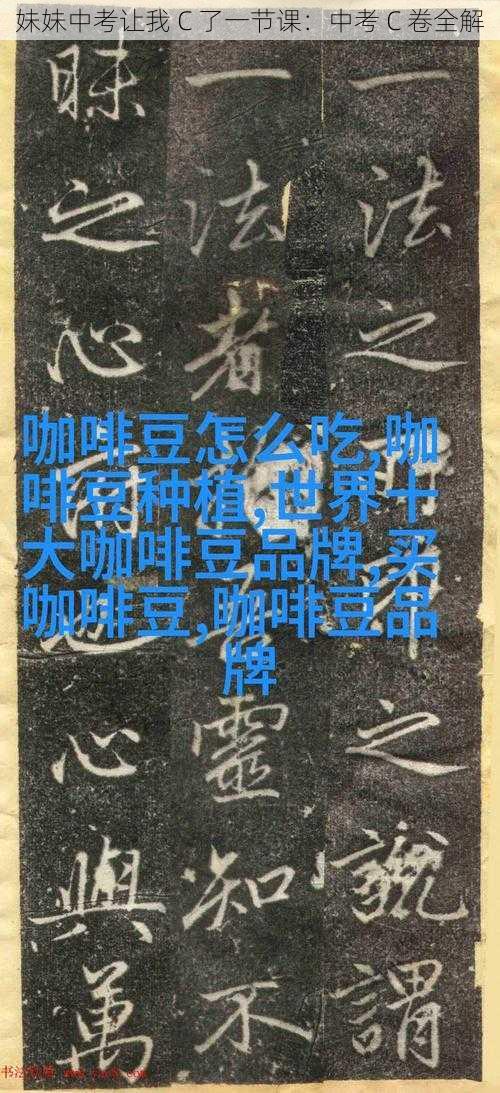 妹妹中考让我 C 了一节课：中考 C 卷全解
一法之
之說謂
一法者
靈知不
昧之心
心與萬
咖啡豆怎么吃,咖
啡豆种植,世界十
大咖啡豆品牌,买
咖啡豆,咖啡豆品
牌
书法